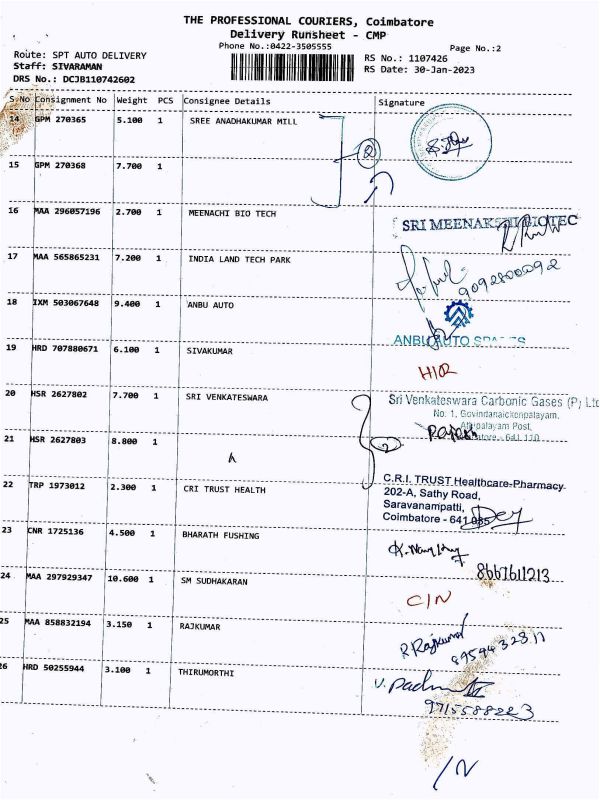 THE PROFESSIONAL COURIERS, Coimbatore
Delivery Runsheet - CMP
Phone No.:0422-3505555
Page No.:2
Route: SPT AUTO DELIVERY
RS No.: 1107426
Staff: SIVARAMAN
RS Date: 30-Jan-2023
DRS No.: DCJB110742602
S.No Consignment No Weight PCS Consignee Details Signature
14 GPM 270365 5.100 1 SREE ANADHAKUMAR MILL
2
15 GPM 270368 7.700 1
16 MAA 296057196 2.700 1 MEENACHI BIO TECH
SRI MEENAKSHI BIOTEC
17 MAA 565865231 7.200 1 INDIA LAND TECH PARK
9092800092
18 IXM 503067648 9.400 1 ANBU AUTO
ANBU AUTO SPARES
19 HRD 707880671 6.100 1 SIVAKUMAR
H/R
20 HSR 2627802 7.700 1 SRI VENKATESWARA
Sri Venkateswara Carbonic Gases (P) Ltd
No. 1, Govindanaickenpalayam,
Athipalayam Post,
Coimbatore - 641 110
21 HSR 2627803 8.800 1
2
22 TRP 1973012 2.300 1 CRI TRUST HEALTH
C.R.I. TRUST Healthcare-Pharmacy
202-A, Sathy Road,
Saravanampatti,
Coimbatore - 641 035
23 CNR 1725136 4.500 1 BHARATH FUSHING
8667611213
24 MAA 297929347 10.600 1 SM SUDHAKARAN
C/N
25 MAA 858832194 3.150 1 RAJKUMAR
R Rajkumar
26 HRD 50255944 3.100 1 THIRUMORTHI
9715588223
/N